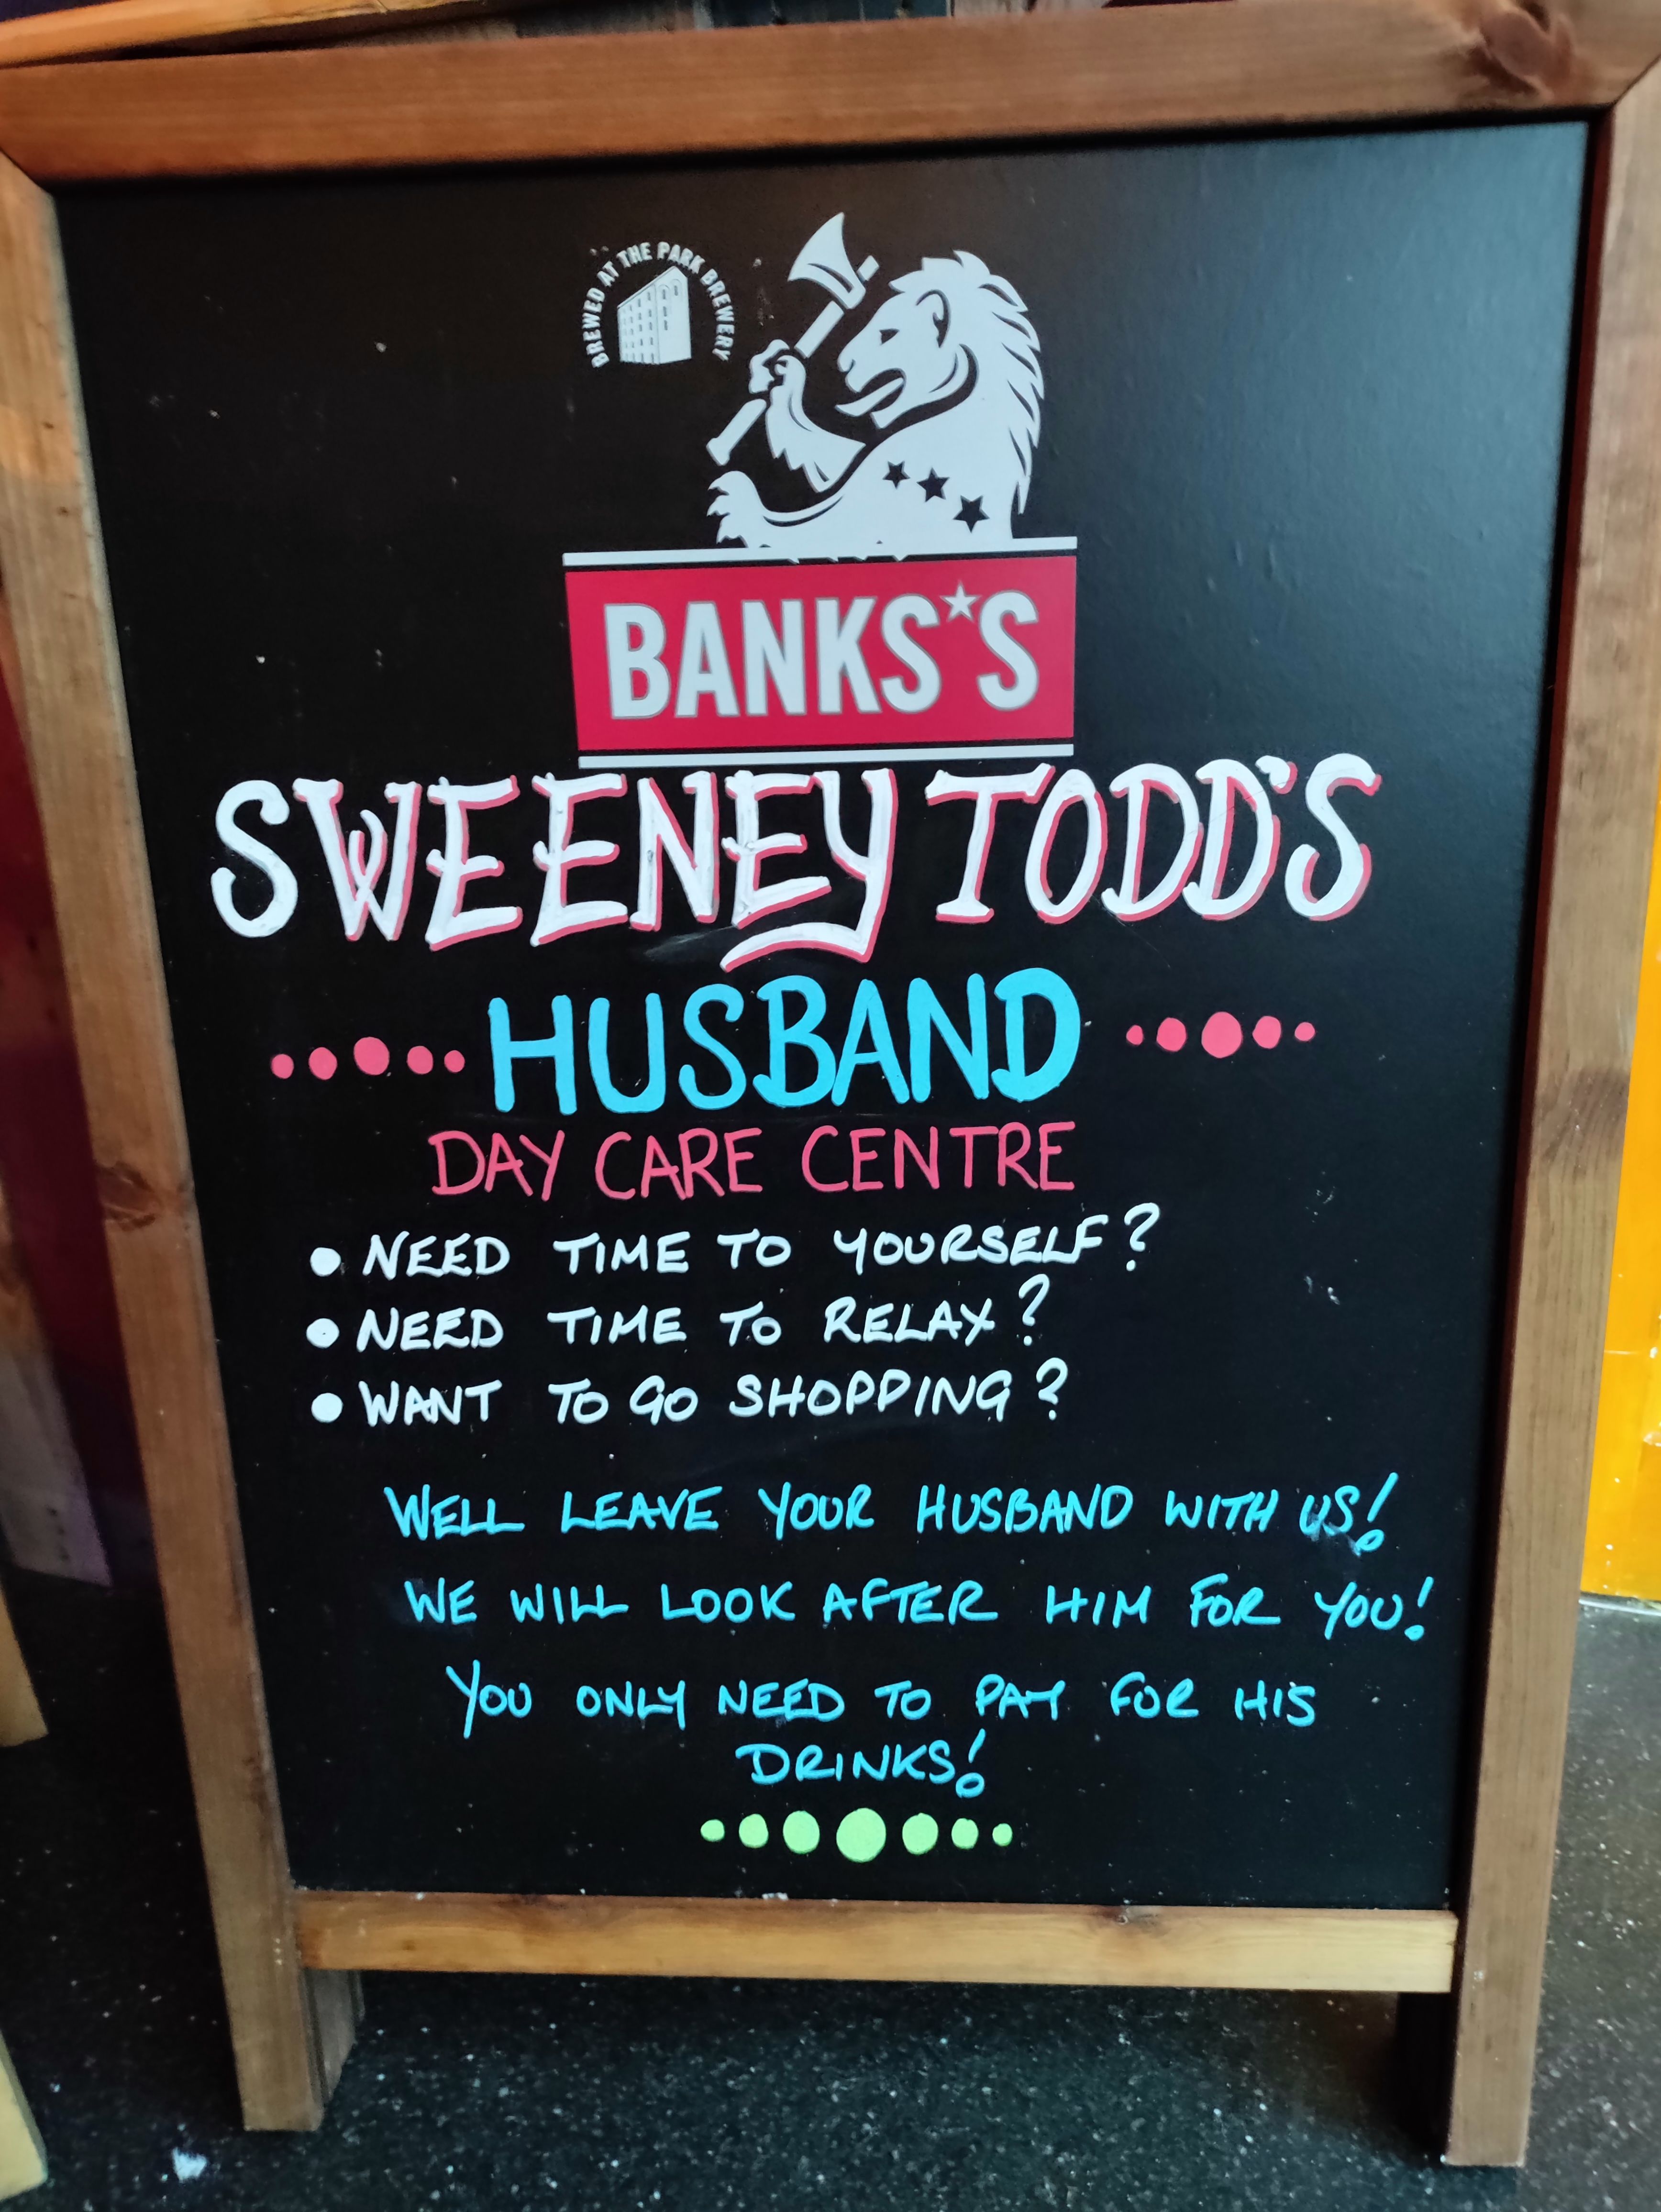 BREWED AT THE PARK BREWERY
BANKS'S
SWEENEY TODD'S
HUSBAND
DAY CARE CENTRE
• NEED TIME TO YOURSELF?
• NEED TIME TO RELAX?
• WANT TO GO SHOPPING?
WELL LEAVE YOUR HUSBAND WITH US!
WE WILL LOOK AFTER HIM FOR YOU!
YOU ONLY NEED TO PAY FOR HIS
DRINKS!